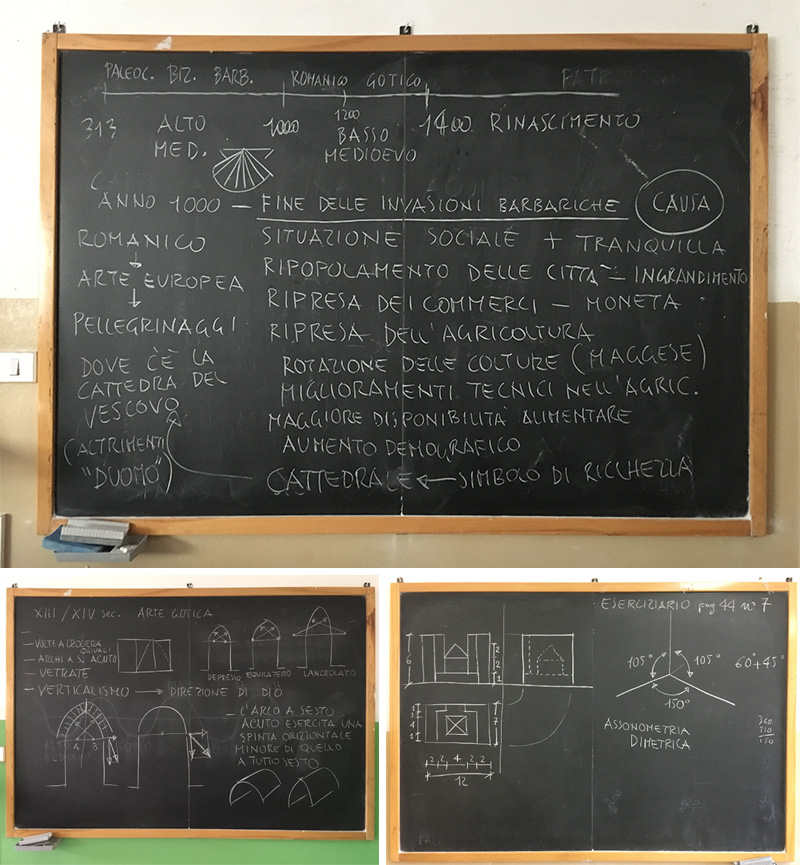 PALEOC. BIZ. BARB. ROMANICO GOTICO
313 ALTO MED. 1000 1200 BASSO MEDIOEVO 1400 RINASCIMENTO
ANNO 1000 — FINE DELLE INVASIONI BARBARICHE CAUSA
ROMANICO
ARTE EUROPEA
PELLEGRINAGGI
DOVE C'È LA
CATTEDRA DEL
VESCOVO
(ALTRIMENTI
"DUOMO")
SITUAZIONE SOCIALE + TRANQUILLA
RIPOPOLAMENTO DELLE CITTÀ — INGRANDIMENTO
RIPRESA DEI COMMERCI — MONETA
RIPRESA DELL'AGRICOLTURA
ROTAZIONE DELLE COLTURE (MAGGESE)
MIGLIORAMENTI TECNICI NELL'AGRIC.
MAGGIORE DISPONIBILITÀ ALIMENTARE
AUMENTO DEMOGRAFICO
CATTEDRALE ← SIMBOLO DI RICCHEZZA
XIII / XIV sec. ARTE GOTICA
— VOLTE A CROCIERA OGIVALI
— ARCHI A S. ACUTO
— VETRATE
— VERTICALISMO → DIREZIONE DI DIO
DEPRESSO EQUILATERO LANCEOLATO
— L'ARCO A SESTO
ACUTO ESERCITA UNA
SPINTA ORIZZONTALE
MINORE DI QUELLO
A TUTTO SESTO
ESERCIZIARIO pag 44 n° 7
6
2
2
1
1
1
7
2 2 4 2 2
12
105° 105° 60°+45°
150°
ASSONOMETRIA
DIMETRICA
360
210
150